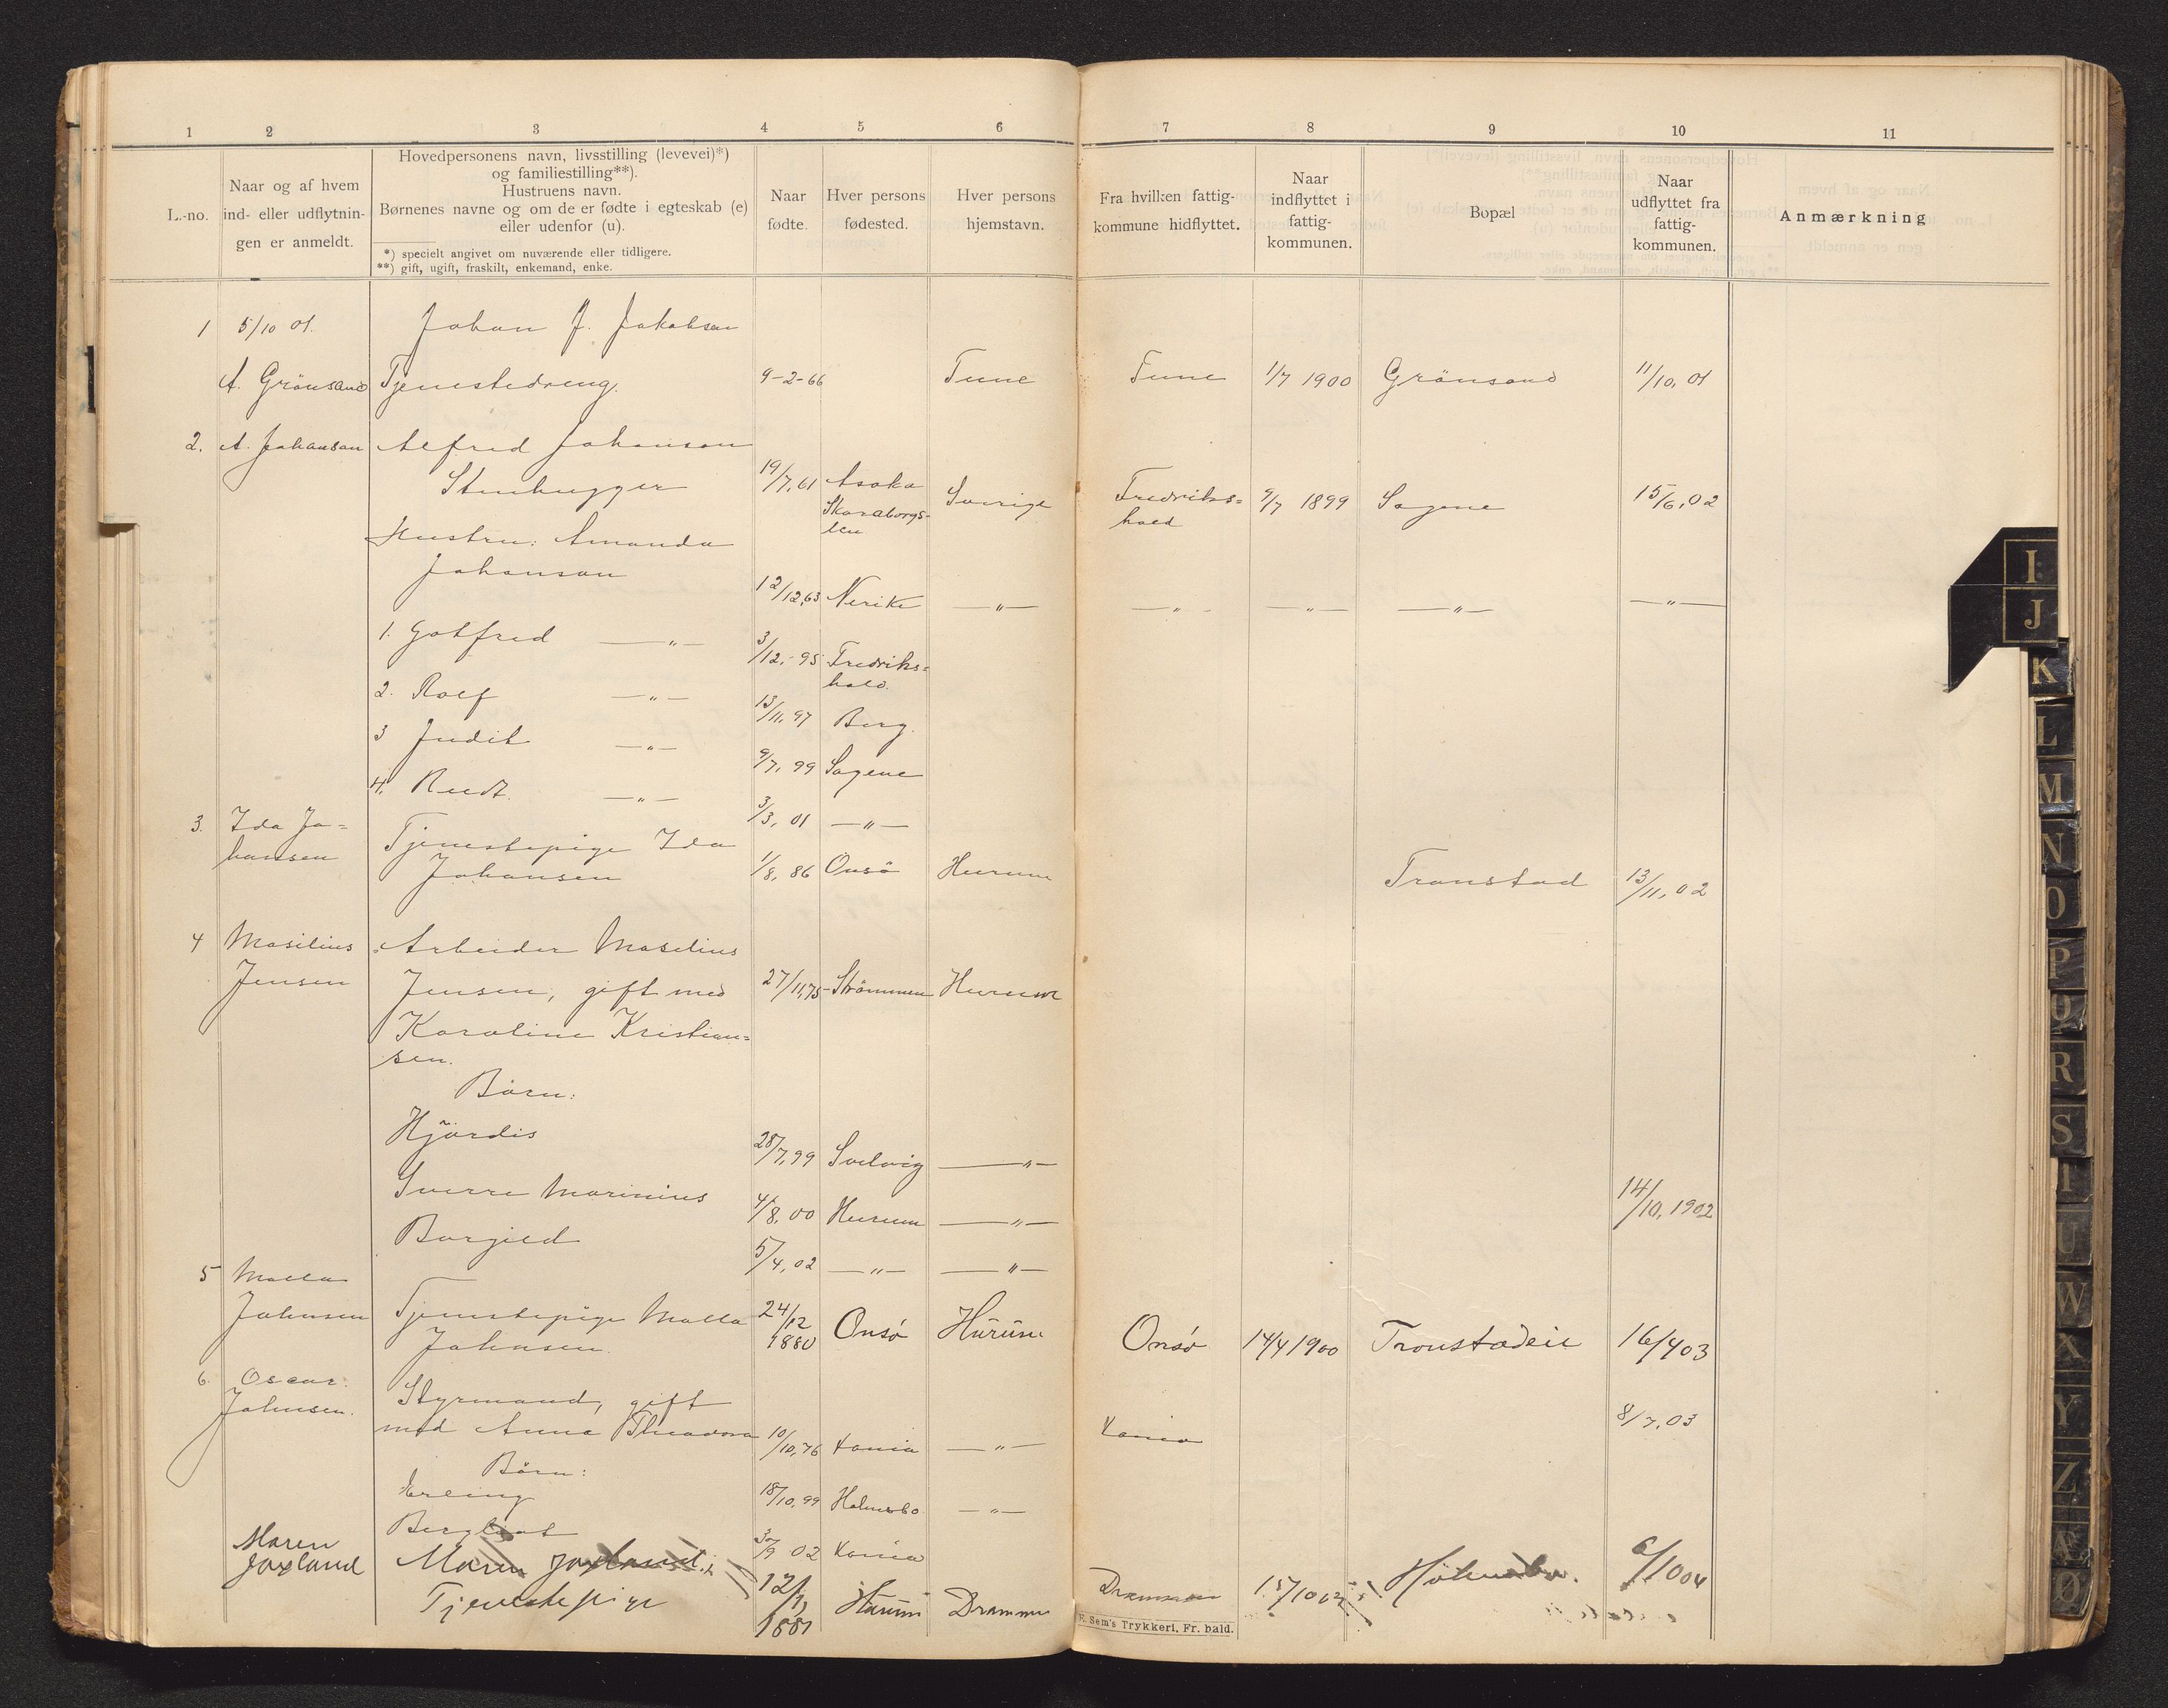 1 2 3 4 5 6 7 8 9 10 11
L.-no.
Naar og af hvem
ind- eller udflytnin-
gen er anmeldt.
Hovedpersonens navn, livsstilling (levevei)*)
og familiestilling**).
Hustruens navn.
Børnenes navne og om de er fødte i egteskab (e)
eller udenfor (u).
*) specielt angivet om nuværende eller tidligere.
**) gift, ugift, fraskilt, enkemand, enke.
Naar
fødte.
Hver persons
fødested.
Hver persons
hjemstavn.
Fra hvilken fattig-
kommune hidflyttet.
Naar
indflyttet i
fattig-
kommunen.
Bopæl
Naar
udflyttet fra
fattig-
kommunen.
Anmærkning
1 5/10 01. Johan J. Jakobsen
A. Grönsand Tjenestedreng. 9-2-66 Tune Tune 1/7 1900 Grönsand 11/10, 01
2. A. Johanson Alfred Johanson
Stenhugger 19/7, 61 Asaka Sverige Fredriks= 9/7 1899 Sagene 15/6, 02
Skaraborgs- hald
len
Hustru: Amanda
Johanson 12/12, 63 Nerike —"— —"— —"— —"— —"—
1. Gotfred —"— 3/12, -95 Fredriks=
hald.
2. Rolf —"— 13/11, 97 Berg.
3 Judit —"— 9/7, 99 Sagene
4. Rudt. —"— 3/3, 01 —"—
3. Ida Jo= Tjenestepige Ida
hansen Johansen 1/8, 86 Onsö Hurum Tronstad 13/11, 02
4 Masilius Arbeider Masilius
Jensen Jensen, gift med 27/11, 75 Strömmen Hurum
Karoline Kristian=
sen.
Börn:
Hjördis 28/7, 99 Svelvig —"—
Sverre Marinius 4/8, 00 Hurum —"— 14/10, 1902
Borgild 5/4, 02 —"— —"—
5 Malla
Johnsen Tjenestepige Malla 24/12 Onsø Hurum Onsø 14/4 1900 Tronstadeie 16/4 03
Johnsen. 1880
6. Oscar
Johnsen. Styrmand, gift 8/7, 03
med Anna Theodora 10/10, 76 Kania —"— Kania
Börn:
Erling 18/10, 99 Holmsbo —"—
Bergliot 3/9 02 Kania
Maren
Joxland Maren Joxland. 12/1, Hurum Drammen Drammen 15/10 03 Holmsbo. 6/10 04
Tjenestepige 1881
E. Sem's Trykkeri, Fr. hald.
I
J
K
L
M
N
O
P
Q
R
S
T
U
W
X
Y
Z
Æ
Ø